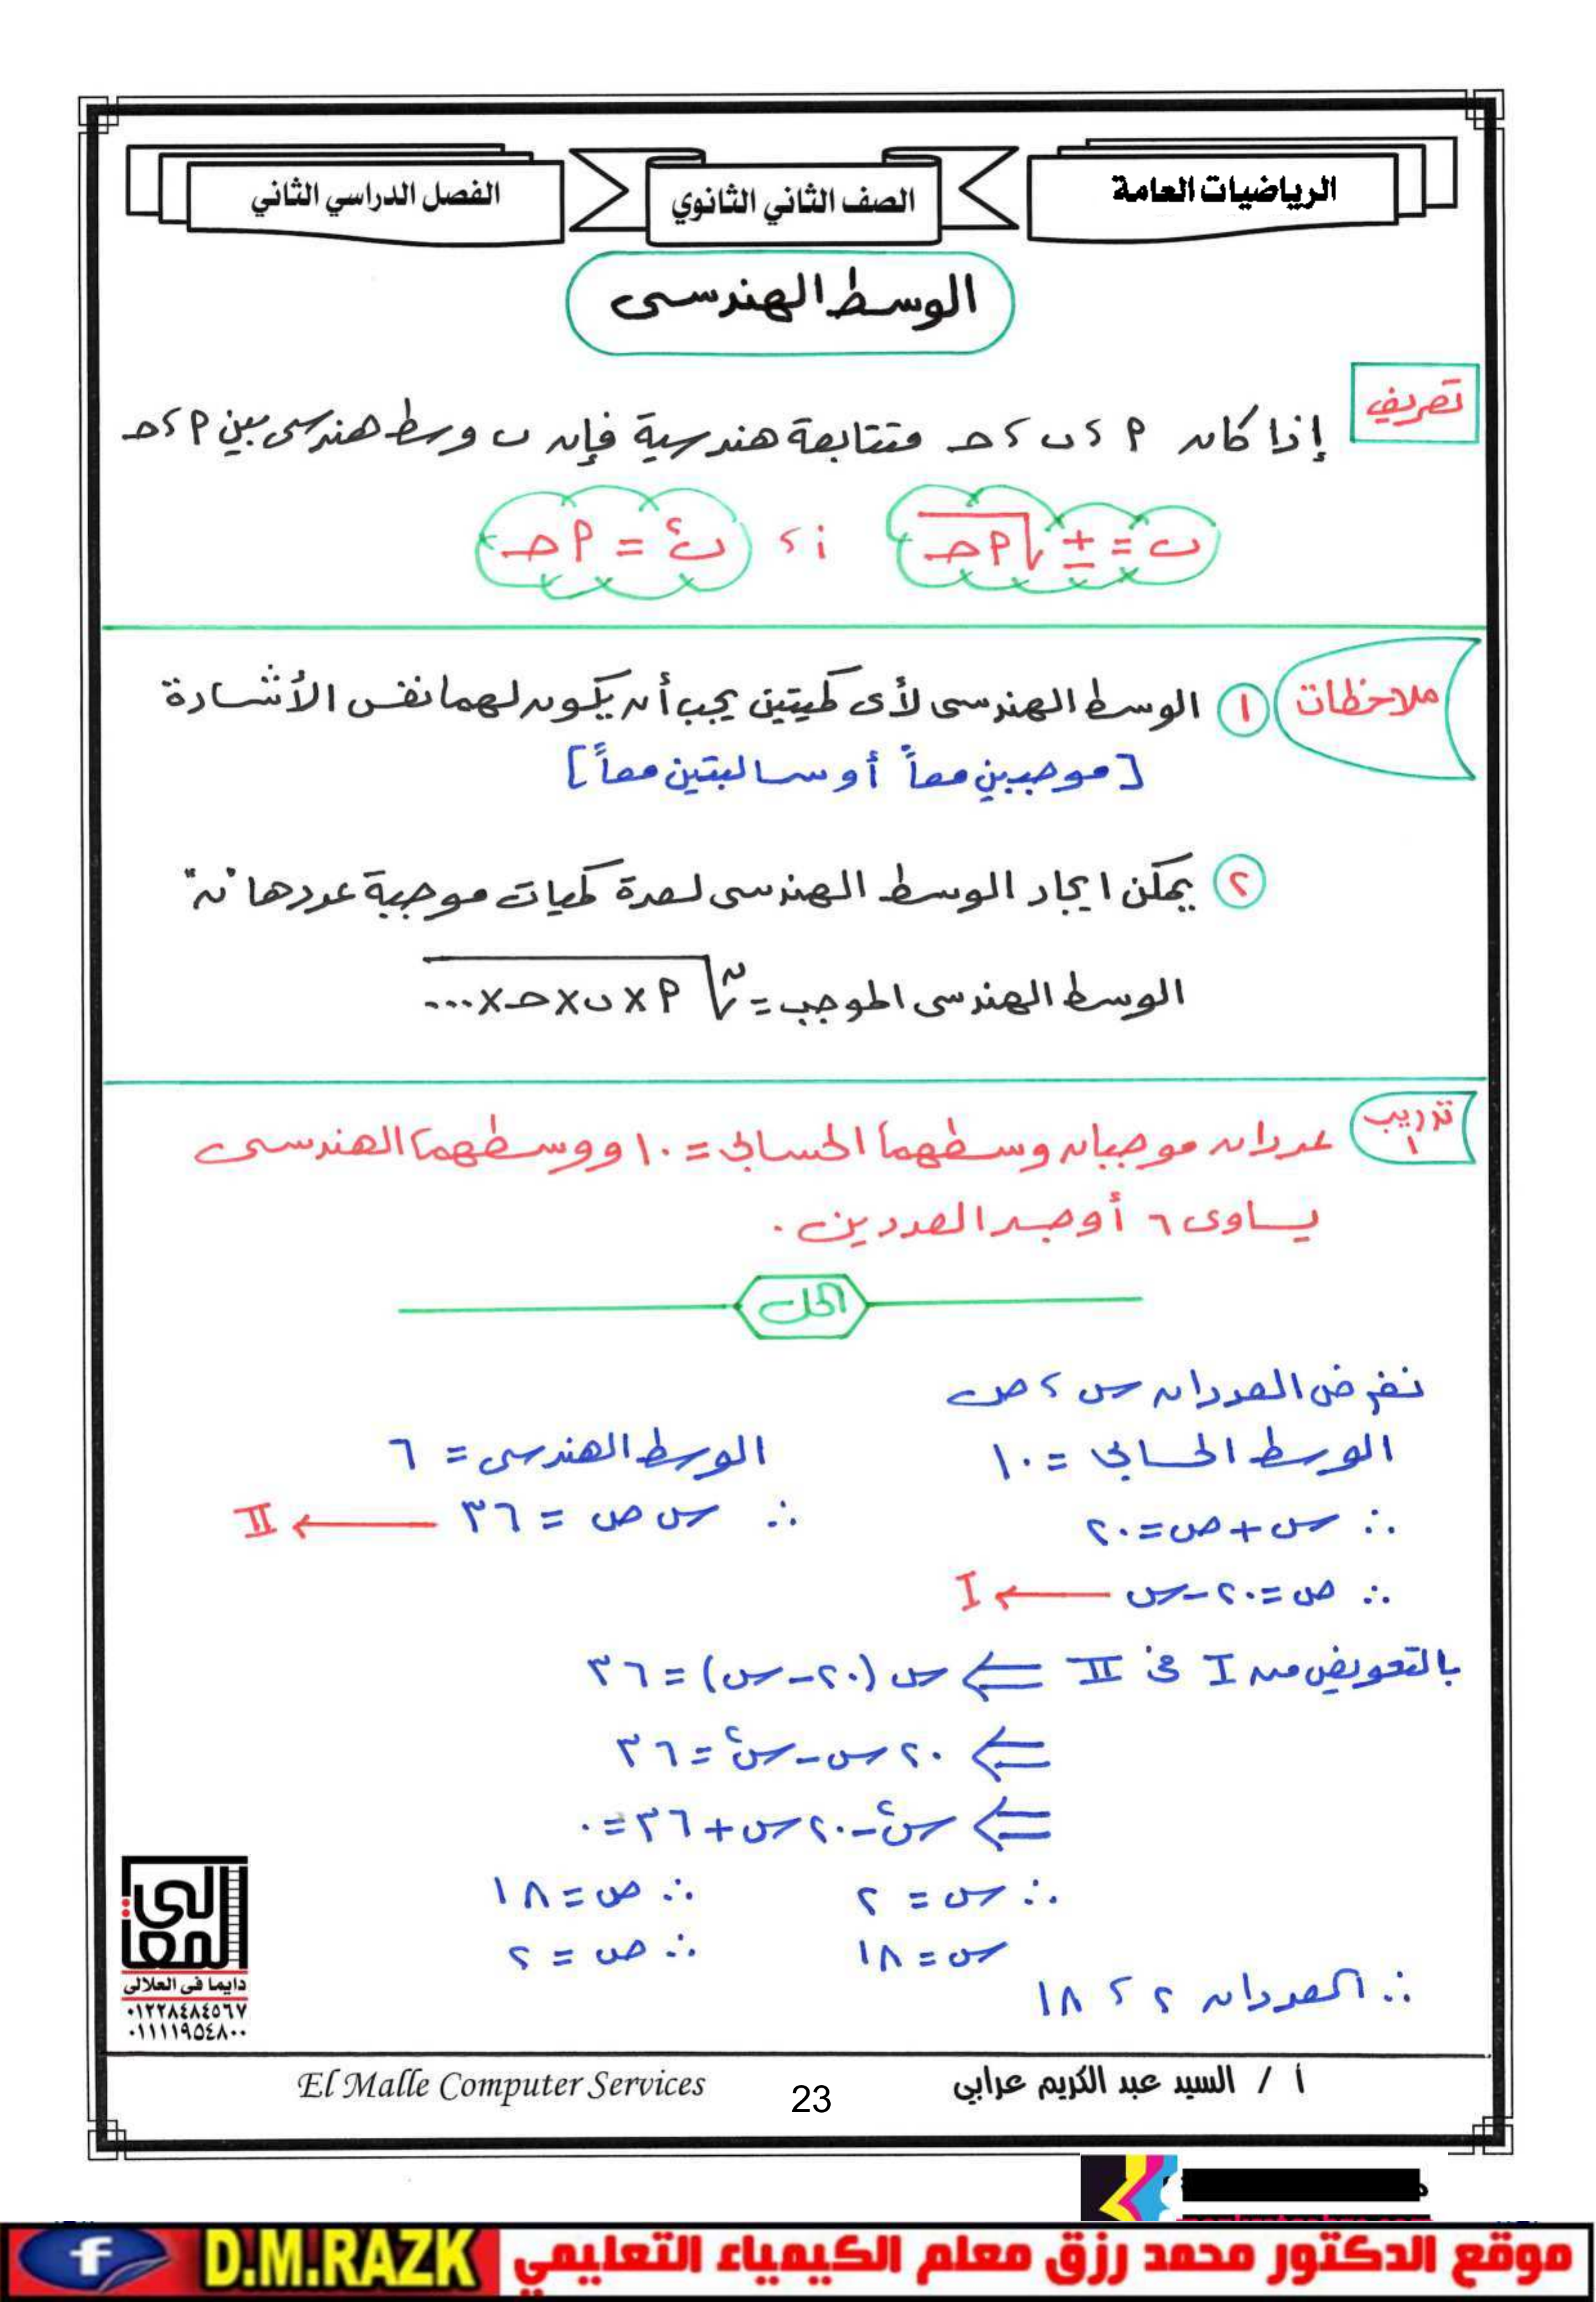 الرياضيات العامة
الصف الثاني الثانوي
الفصل الدراسي الثاني
الوسط الهندسى
تعريف
إذا كان ٢ ، ب ، حـ متتابعة هندسية فإن ب وسط هندسى بين ٢ ، حـ
ب = ± √٢حـ ، أ ب² = ٢حـ
ملاحظات
١ الوسط الهندسى لأى كميتين يجب أن يكون لهما نفس الأشارة
[موجبين معاً أو سالبتين معاً]
٢ يمكن ايجاد الوسط الهندسى لعدة كميات موجبة عددها "ن"
الوسط الهندسى الموجب = ن√٢ × ب × حـ × ...
تدريب ١
عددان موجبان وسطهما الحسابى = ١٠ ووسطهما الهندسى
يساوى ٦ أوجد العددين .
الحل
نفرض العددان س ، ص
الوسط الحسابى = ١٠ الوسط الهندسى = ٦
∴ س + ص = ٢٠ ∴ س ص = ٣٦ ← II
∴ ص = ٢٠ - س ← I
بالتعويض من I فى II ⇐ س (٢٠ - س) = ٣٦
⇐ ٢٠ س - س² = ٣٦
⇐ س² - ٢٠ س + ٣٦ = ٠
∴ س = ٢ ∴ ص = ١٨
س = ١٨ ∴ ص = ٢
∴ العددان ٢ ، ١٨
المعالى
دايما فى العلالى
٠١٢٢٨٤٨٤٥٦٧
٠١١١١٩٥٤٨٠٠
أ / السيد عبد الكريم عرابي
23
El Malle Computer Services
موقع الدكتور محمد رزق معلم الكيمياء التعليمي
D.M.RAZK
f